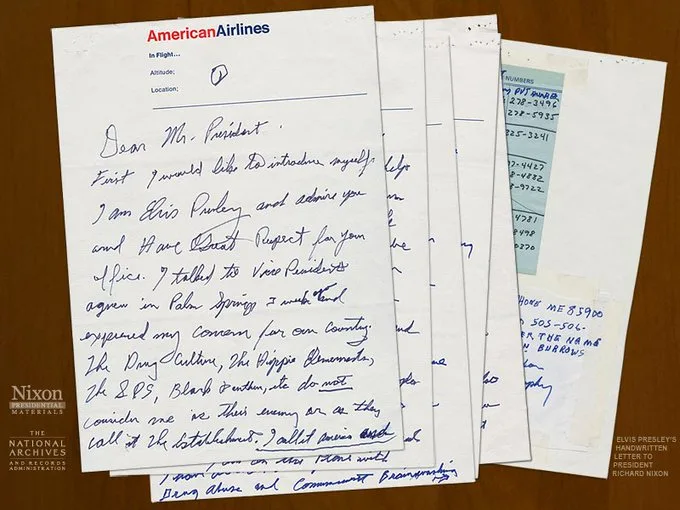 AmericanAirlines
In Flight...
Altitude;
Location;
①
Dear Mr. President.
First I would like to introduce myself.
I am Elvis Presley and admire you
and Have Great Respect for your
office. I talked to Vice President
agnew in Palm Springs 3 weeks and
expressed my concern for our country.
The Drug Culture, The Hippie Elements,
The SDS, Black Panthers, etc do not
consider me as their enemy or as they
call it The Establishment. I call it America and
Drug Abuse and Communist Brainwashing
NUMBERS
278-3496
278-5935
325-3241
7-4427
8-4882
8-9722
4781
8498
0270
PHONE ME 85900
505-506-
ER THE NAME
N BURROWS
Nixon
PRESIDENTIAL
MATERIALS
THE
NATIONAL
ARCHIVES
AND RECORDS
ADMINISTRATION
ELVIS PRESLEY'S
HANDWRITTEN
LETTER TO
PRESIDENT
RICHARD NIXON